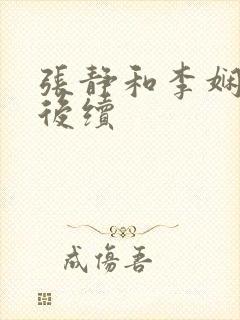 張靜和李娴
後續
成傷吾